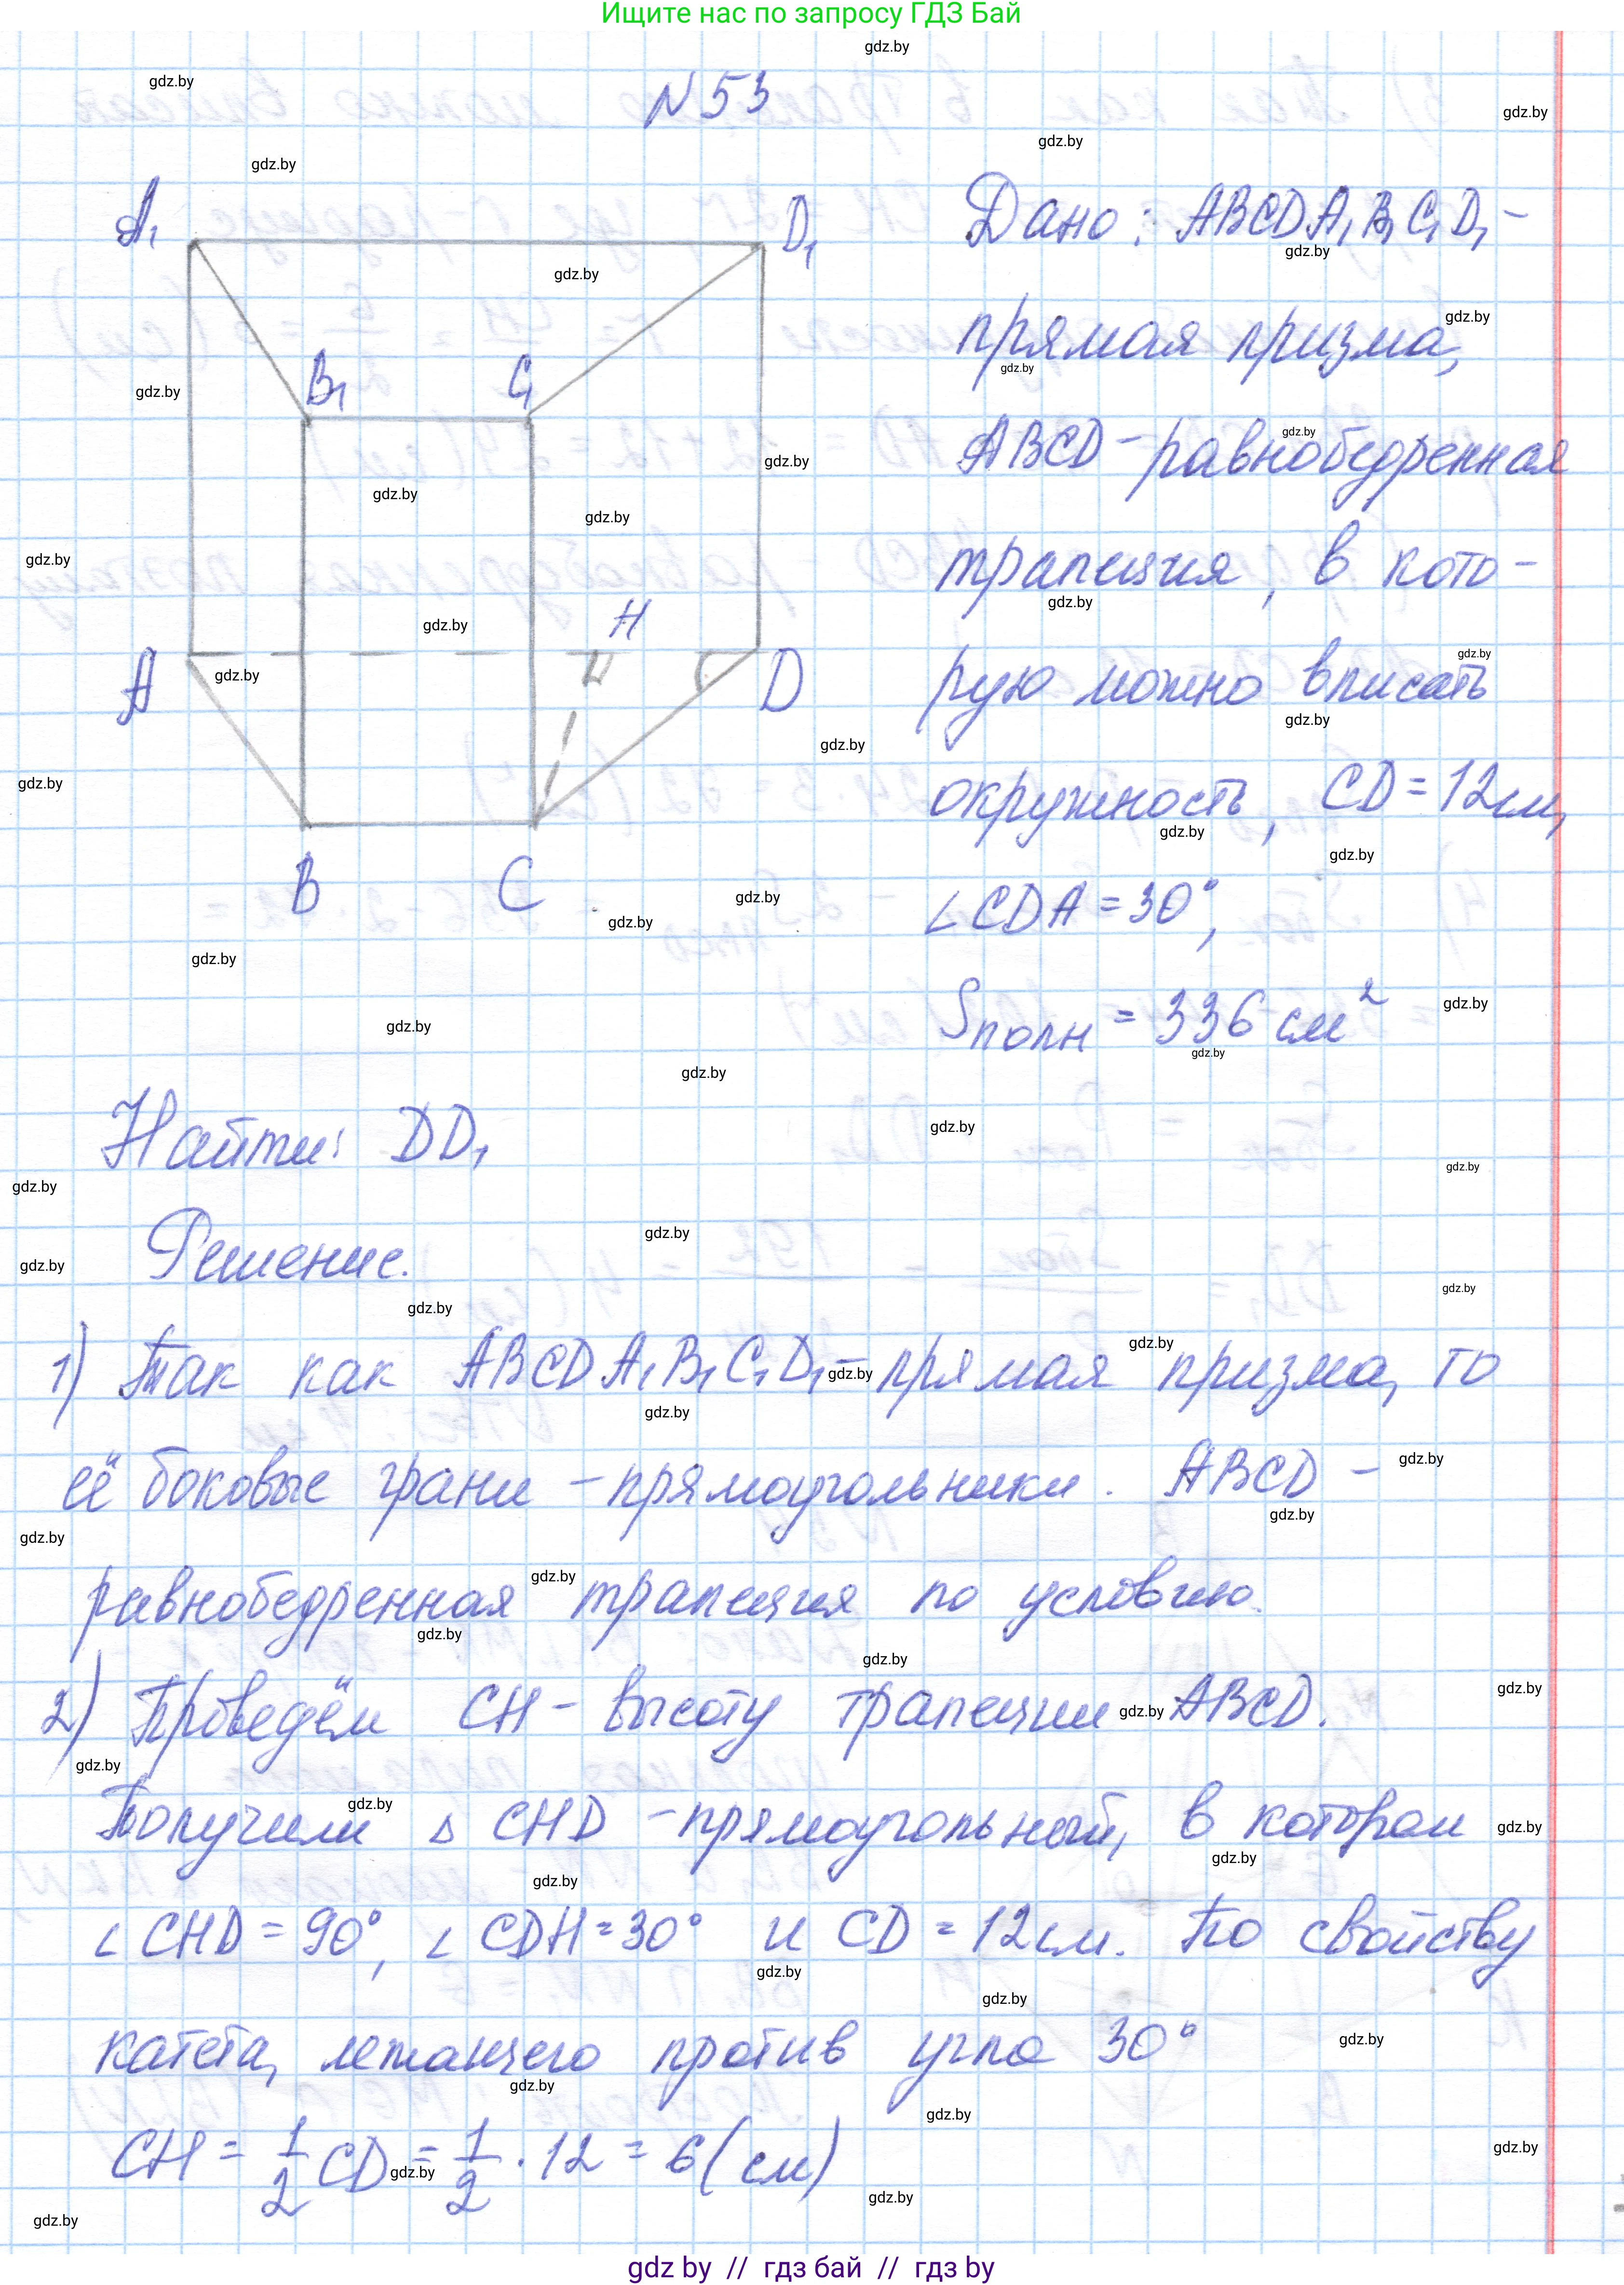 Ищите нас по запросу ГДЗ Бай
N 53
A₁
D₁
B₁
C₁
H
A
D
B
C
Дано: ABCDA₁B₁C₁D₁ –
прямая призма,
ABCD – равнобедренная
трапеция, в кото-
рую можно вписать
окружность, CD = 12 см,
∠CDA = 30°,
Sполн = 336 см²
Найти: DD₁
Решение.
1) Так как ABCDA₁B₁C₁D₁ – прямая призма, то
её боковые грани – прямоугольники. ABCD –
равнобедренная трапеция по условию.
2) Проведём CH – высоту трапеции ABCD.
Получили △ CHD – прямоугольный, в котором
∠CHD = 90°, ∠CDH = 30° и CD = 12 см. По свойству
катета, лежащего против угла 30°
CH = 1/2 CD = 1/2 · 12 = 6 (см)
gdz by // гдз бай // гдз by